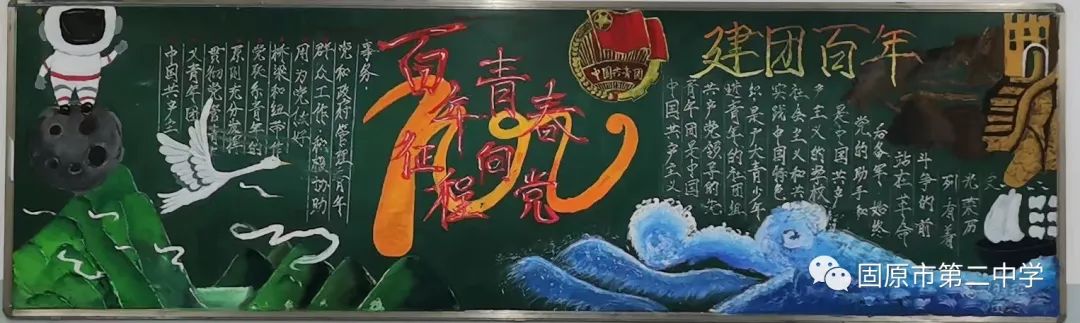 中国共产主
义青年团
贯彻党管青
原则充分发挥
党联系青年的
桥梁和纽带作
用为党做好
群众工作,积极协助
党和政府管理青年
事务.
百年征程
青春向党
100
中国共青团
建团百年
中国共产主义
青年团是中国
共产党领导的先
进青年的社团组
织,是广大青少年
实践中国特色
社会主义和共
产主义的学校
是中国共产
党的助手和
后备军,始终
站在革命
斗争的前
列,有着
光荣历
史
固原市第二中学